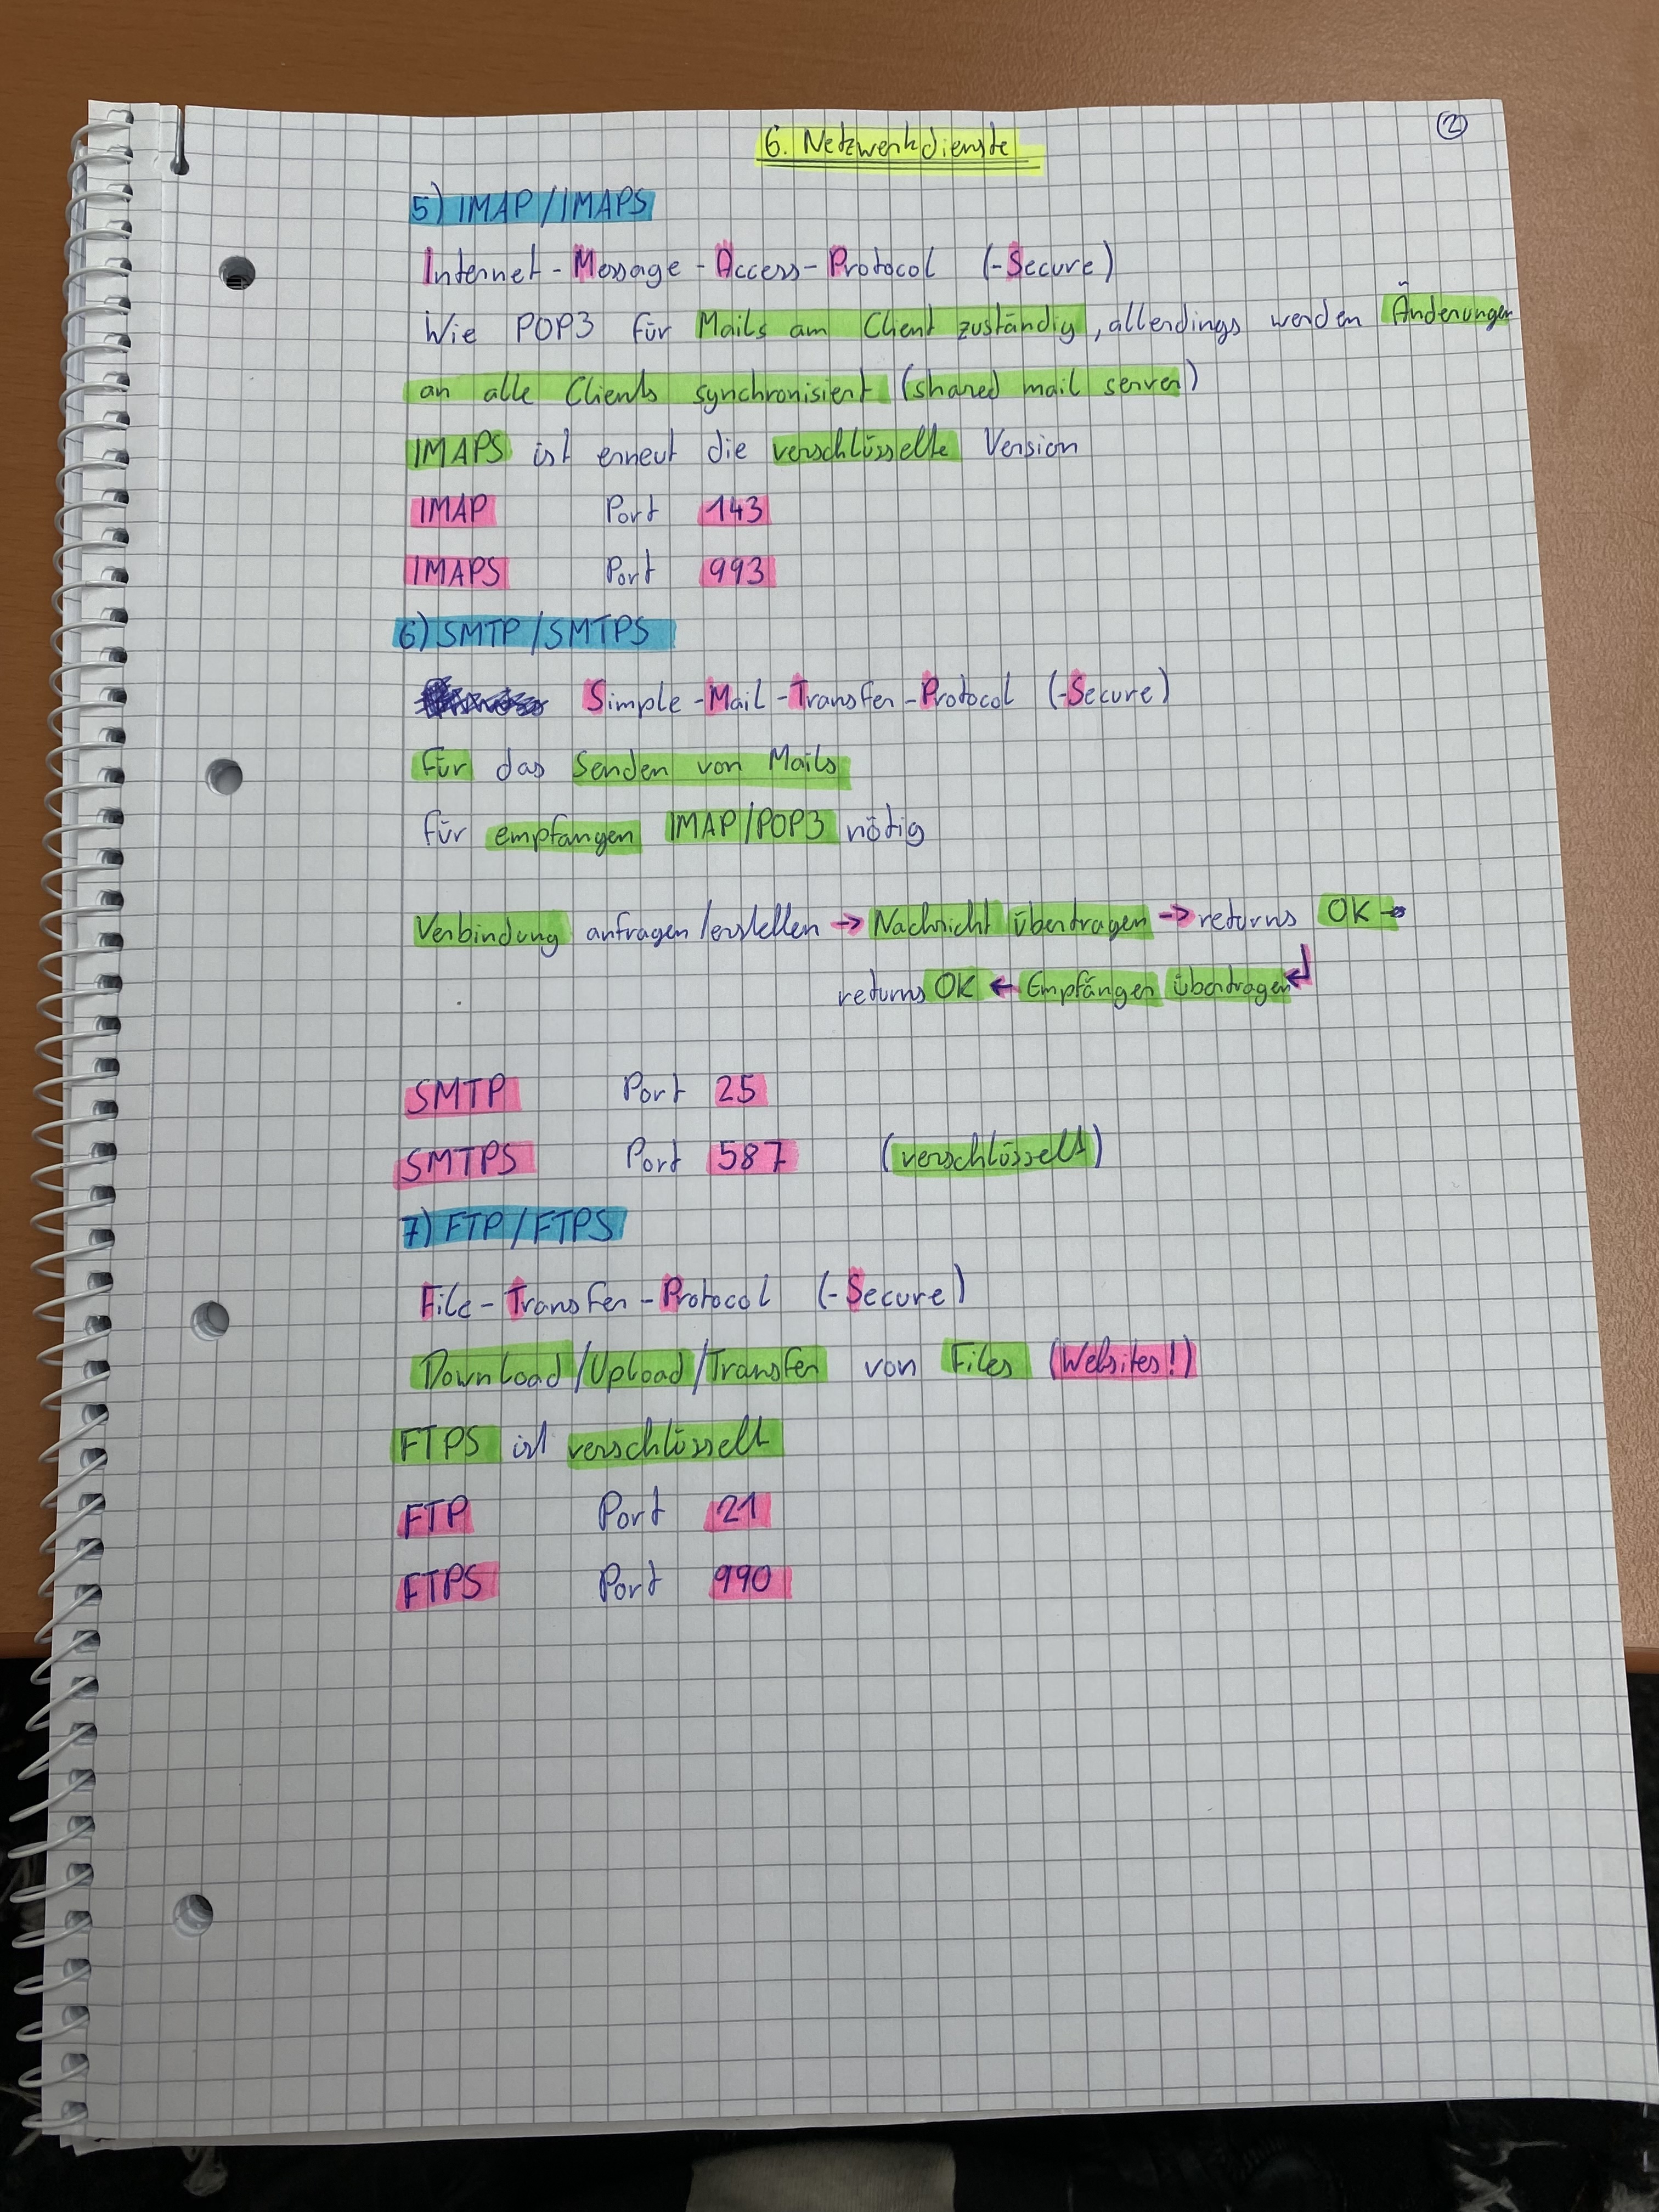 6. Netzwerkdienste
②
5) IMAP/IMAPS
Internet-Message-Access-Protocol (-Secure)
Wie POP3 für Mails am Client zuständig, allerdings werden Änderungen
an alle Clients synchronisiert (shared mail server)
IMAPS ist erneut die verschlüsselte Version
IMAP Port 143
IMAPS Port 993
6) SMTP/SMTPS
Simple-Mail-Transfer-Protocol (-Secure)
Für das Senden von Mails
für empfangen IMAP/POP3 nötig
Verbindung anfragen/erstellen → Nachricht übertragen → returns OK →
returns OK ← Empfänger übertragen ↲
SMTP Port 25
SMTPS Port 587 (verschlüsselt)
7) FTP/FTPS
File-Transfer-Protocol (-Secure)
Download/Upload/Transfer von Files (Websites!)
FTPS ist verschlüsselt
FTP Port 21
FTPS Port 990